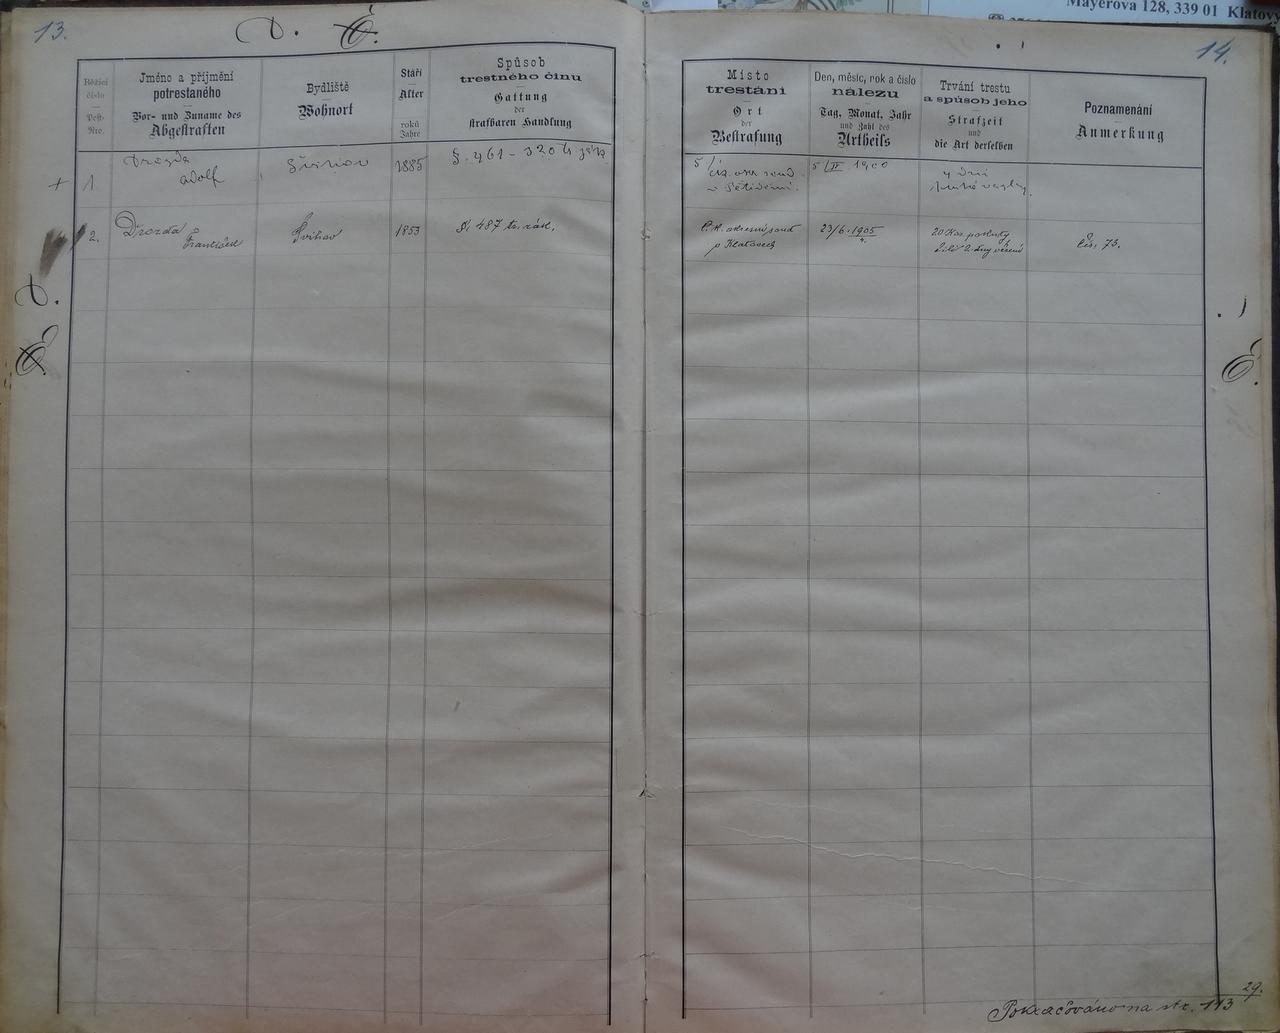 13.
D. Ď.
Mayerova 128, 339 01 Klatovy
14.
Běžící
číslo
Post-
Nro.
Jméno a příjmění
potrestaného
Vor- und Zuname des
Abgestraften
Bydliště
Wohnort
Stáří
Alter
roků
Jahre
Spůsob
trestného činu
Gattung
der
strafbaren Handlung
Místo
trestání
Ort
der
Bestrafung
Den, měsíc, rok a číslo
nálezu
Tag, Monat, Jahr
und Zahl des
Urtheils
Trvání trestu
a spůsob jeho
Strafzeit
und
die Art derselben
Poznamenání
Anmerkung
+ 1.
Drozda
Adolf
1885
§. 461 - 320
5/II 1900
4 dni
2.
Drozda
František
Švihov
1853
§. 487 tr. zák.
C.k. okresní soud
v Klatovech
23/6 1905
20 Kor. pokuty
2 dny vězení
Čís. 73.
D.
Ď.
Pokračováno na str. 113
29.